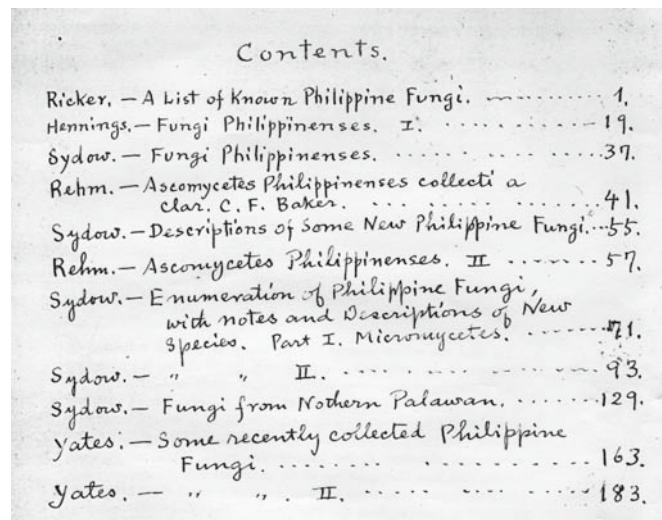 Contents.
Ricker. — A List of Known Philippine Fungi. ............ 1.
Hennings. — Fungi Philippinenses. I. ............ 19.
Sydow. — Fungi Philippinenses. ............ 37.
Rehm. — Ascomycetes Philippinenses collecti a
clar. C. F. Baker. ............ 41.
Sydow. — Descriptions of Some New Philippine Fungi. ... 55.
Rehm. — Ascomycetes Philippinenses. II ........ 57.
Sydow. — Enumeration of Philippine Fungi,
with notes and Descriptions of New
Species. Part I. Micromycetes. ........ 71.
Sydow. — " " II. ............ 93.
Sydow. — Fungi from Nothern Palawan. ........ 129.
Yates. — Some recently collected Philippine
Fungi. ............ 163.
Yates. — " " . II. ............ 183.